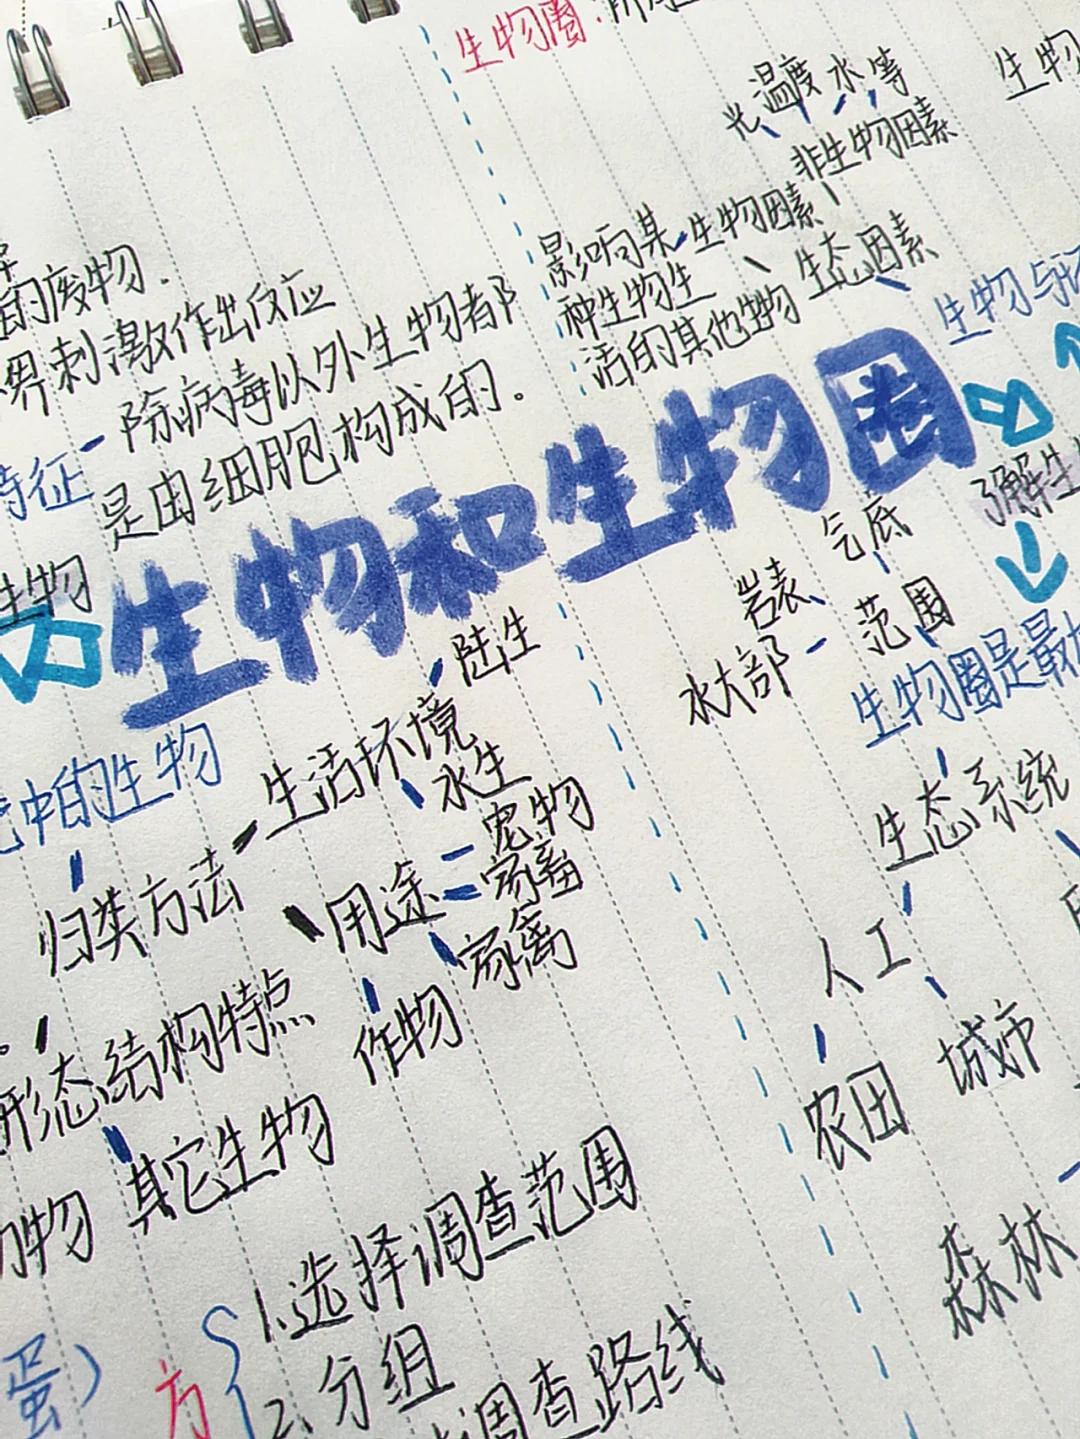 生物圈:所
光 温度 水 等
生物
非生物因素
影响某
种生物生
活的其他生物
生物因素
生态因素
生物与环
的废物.
界刺激作出反应
除病毒以外生物都
是由细胞构成的.
特征
生物
生物和生物圈
了解生
气底
岩表
水大部
范围
生物圈是最大
生态系统
人工
农田
城市
森林
的生物
归类方法
生活环境
陆生
水生
用途
宠物
家畜
家禽
作物
形态结构特点
物
其它生物
1.选择调查范围
2.分组
调查路线
方
蛋)